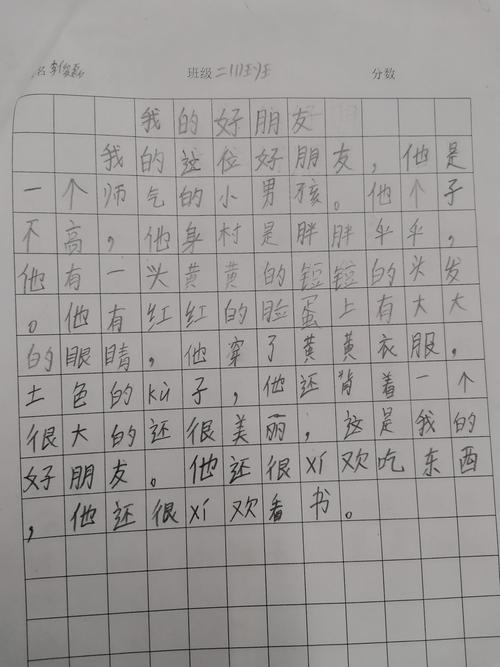 名 李俊磊 班级 二(11)班 分数
我的好朋友
我的这位好朋友，他是
一个师气的小男孩。他个子
不高，他身村是胖胖乎乎，
他有一头黄黄的短短的头发
。他有红红的脸蛋上有大大
的眼睛，他穿了黄黄衣服，
土色的kù子，他还背着一个
很大的还很美丽，这是我的
好朋友。他还很xǐ欢吃东西
，他还很xǐ欢看书。